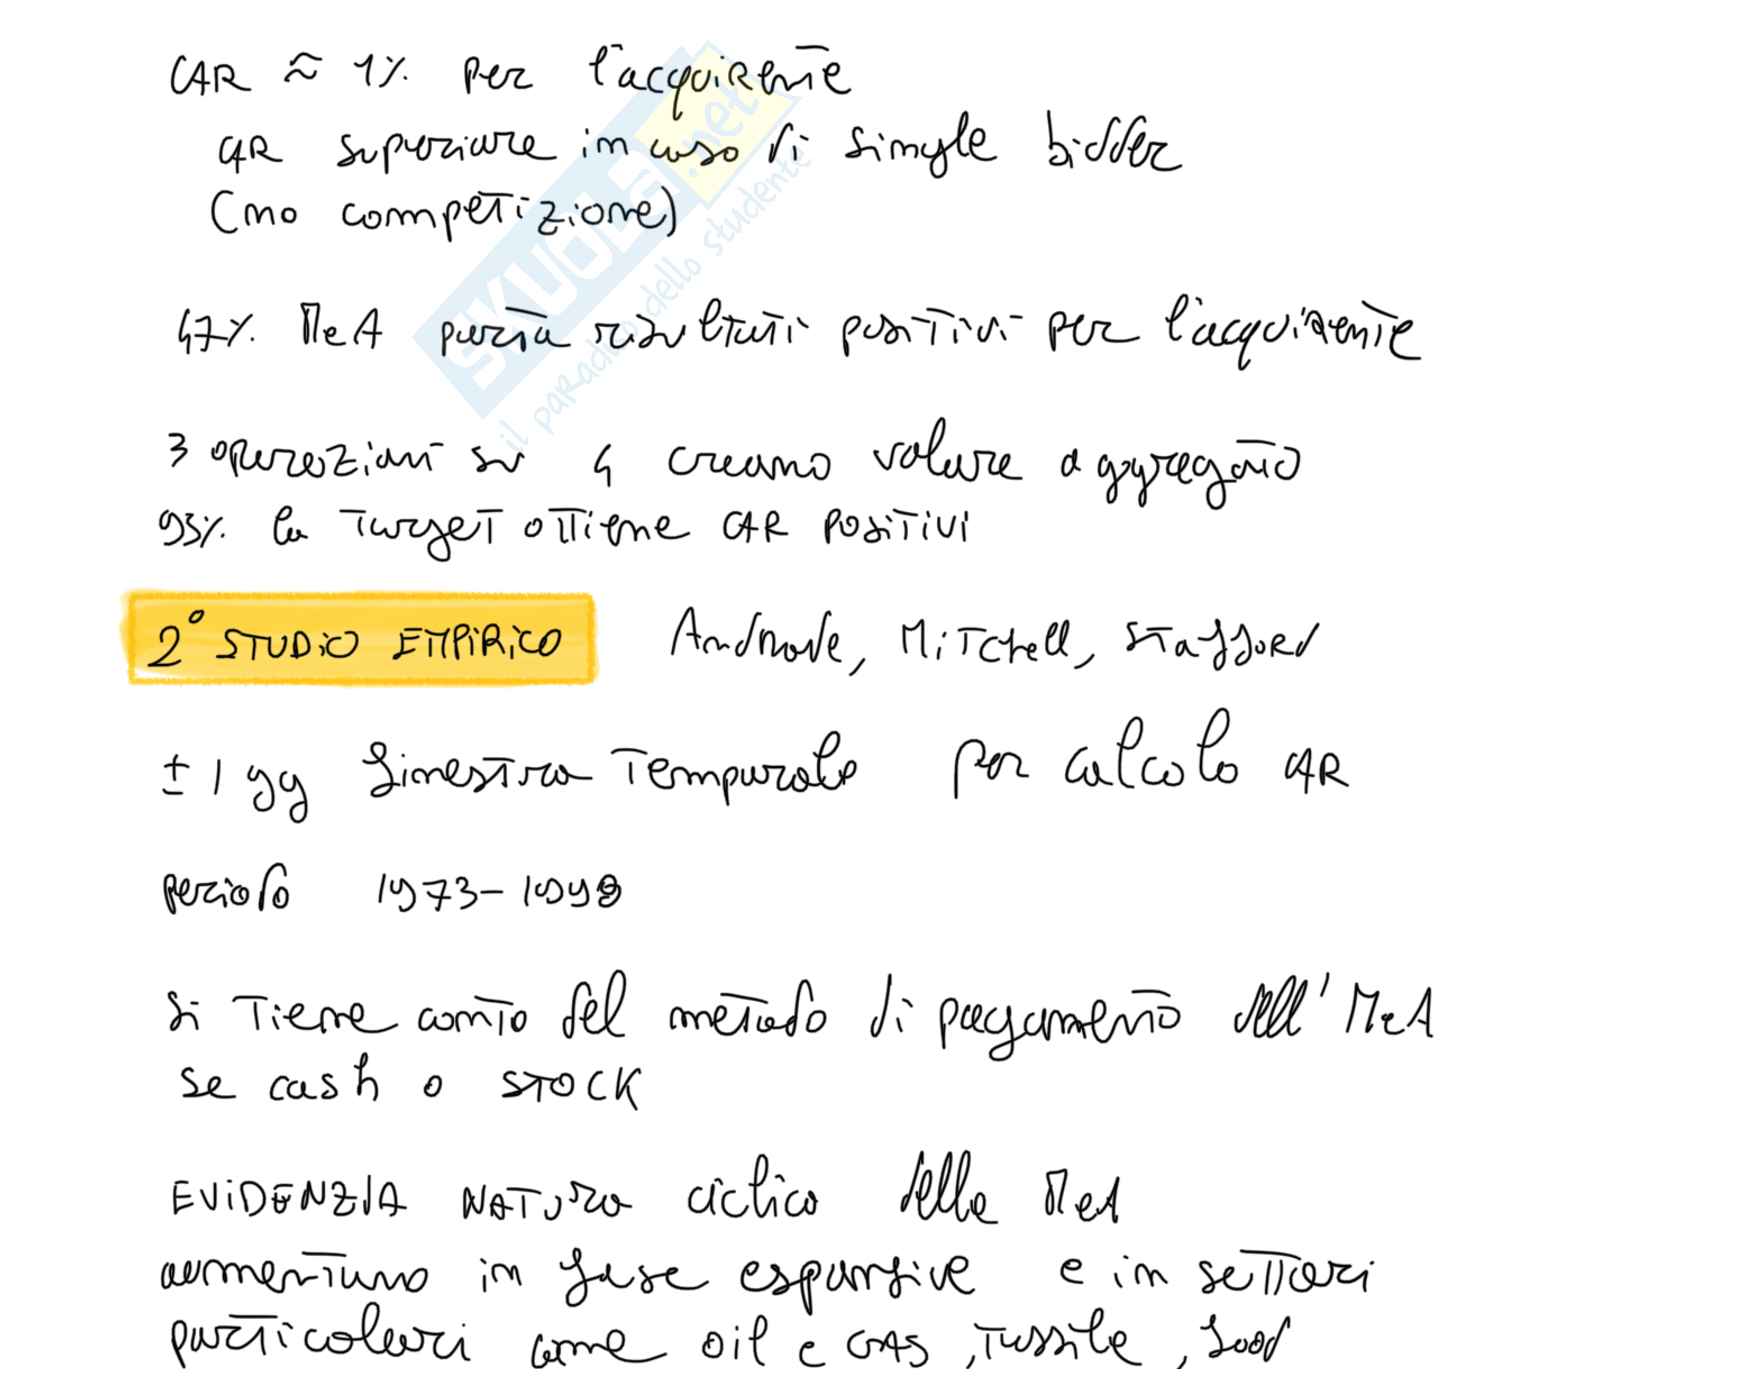 CAR ≈ 1% per l'acquirente
CAR superiore in caso di single bidder
(no competizione)
47% MeA porta risultati positivi per l'acquirente
3 operazioni su 4 creano valore aggregato
93% la target ottiene CAR positivi
2° STUDIO EMPIRICO Andrade, Mitchell, Stafford
±1 gg finestra temporale per calcolo CAR
periodo 1973-1998
Si tiene conto del metodo di pagamento dell'MeA
se cash o STOCK
EVIDENZIA NATURA ciclica delle MeA
aumentano in fase espansive e in settori
particolari come oil e GAS, tessile, food
SKUOLA.net
il paradiso dello studente